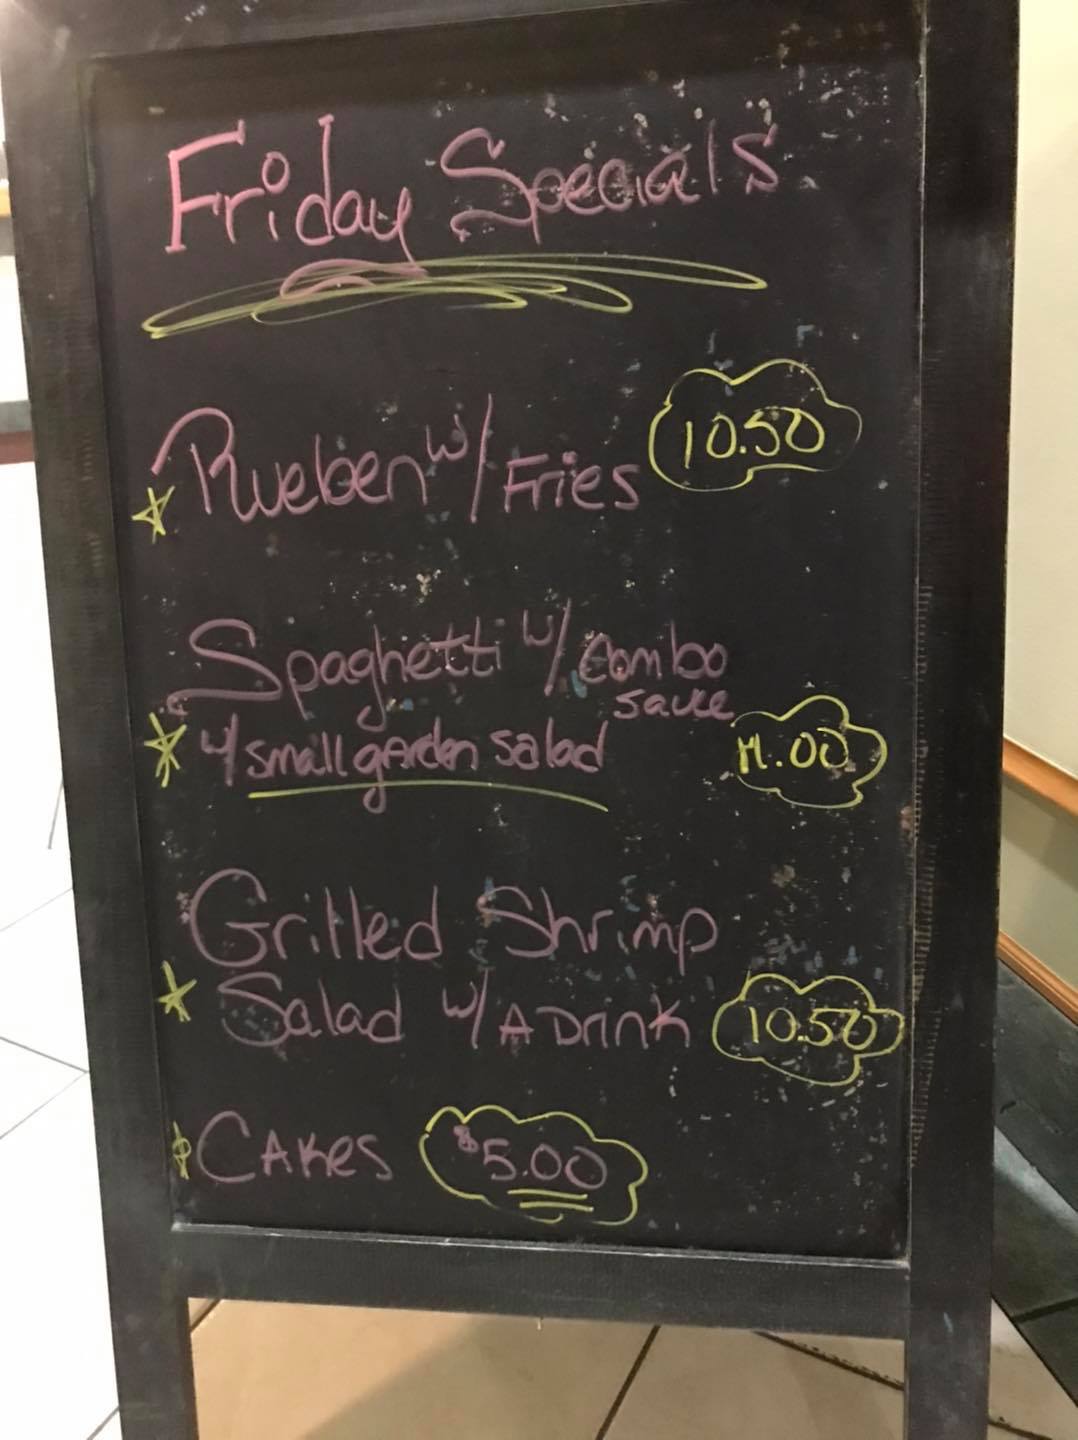 Friday Specials
Rueben w/ Fries 10.50
Spaghetti w/ combo
sauce
w/ small garden salad 11.00
Grilled Shrimp
Salad w/ A Drink 10.50
Cakes $5.00